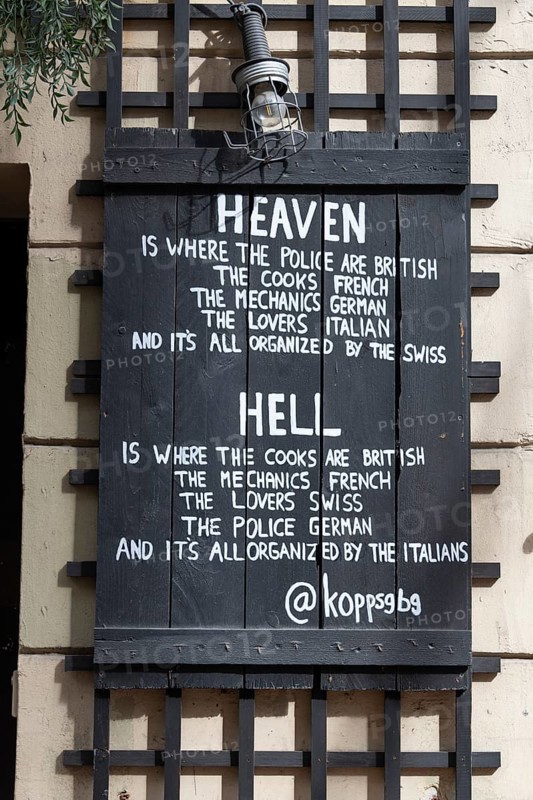 HEAVEN
IS WHERE THE POLICE ARE BRITISH
THE COOKS FRENCH
THE MECHANICS GERMAN
THE LOVERS ITALIAN
AND IT'S ALL ORGANIZED BY THE SWISS
HELL
IS WHERE THE COOKS ARE BRITISH
THE MECHANICS FRENCH
THE LOVERS SWISS
THE POLICE GERMAN
AND IT'S ALL ORGANIZED BY THE ITALIANS
@koppsgbg
PHOTO12